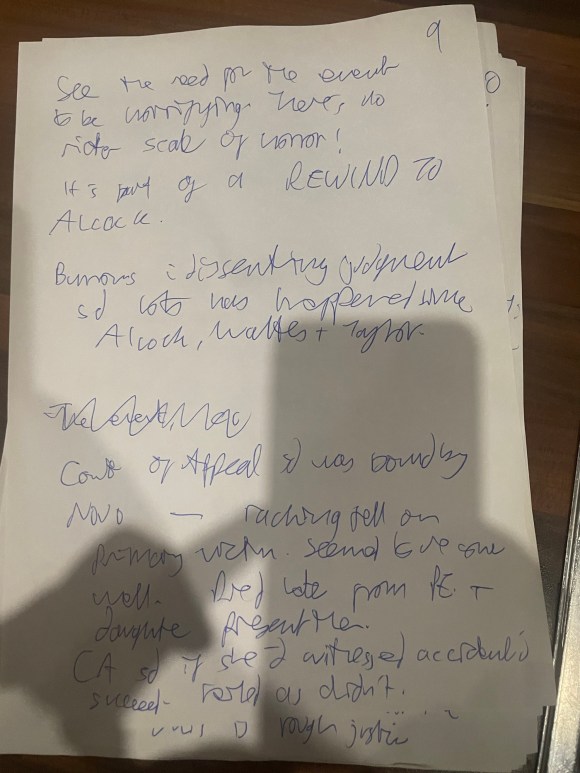 9
See the need for the event
to be horrifying. Here, no
richter scale of horror!
It is part of a REWIND TO
ALCOCK.
Burrows : dissenting judgment
sd lots has happened since
Alcock, Walters + Taylor.
Court of Appeal sd was bound by
Novo — racking fell on
primary victim. Seemed to be some
well. Died later from PE +
daughter present then.
CA sd if she'd witnessed accident I'd
succeed. Failed as didn't.
rough justice